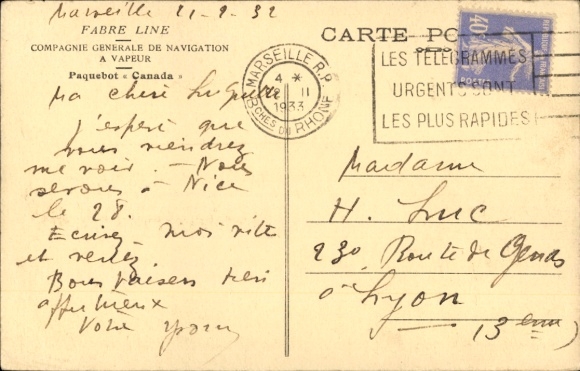 Marseille 21-2-32
FABRE LINE
COMPAGNIE GENERALE DE NAVIGATION
A VAPEUR
Paquebot « Canada »
Ma chère
J'espère que
vous viendrez
me voir. — Nous
serons à Nice
le 28.
Ecrivez moi vite
et venez.
Bons baisers très
affectueux
Votre
CARTE PO
40c
POSTES
MARSEILLE R.P.
4 *
II
1933
BCHES DU RHONE
LES TÉLÉGRAMMES
URGENTS SONT
LES PLUS RAPIDES
Madame
H. Luc
230, Route de Genas
à Lyon
(3eme)